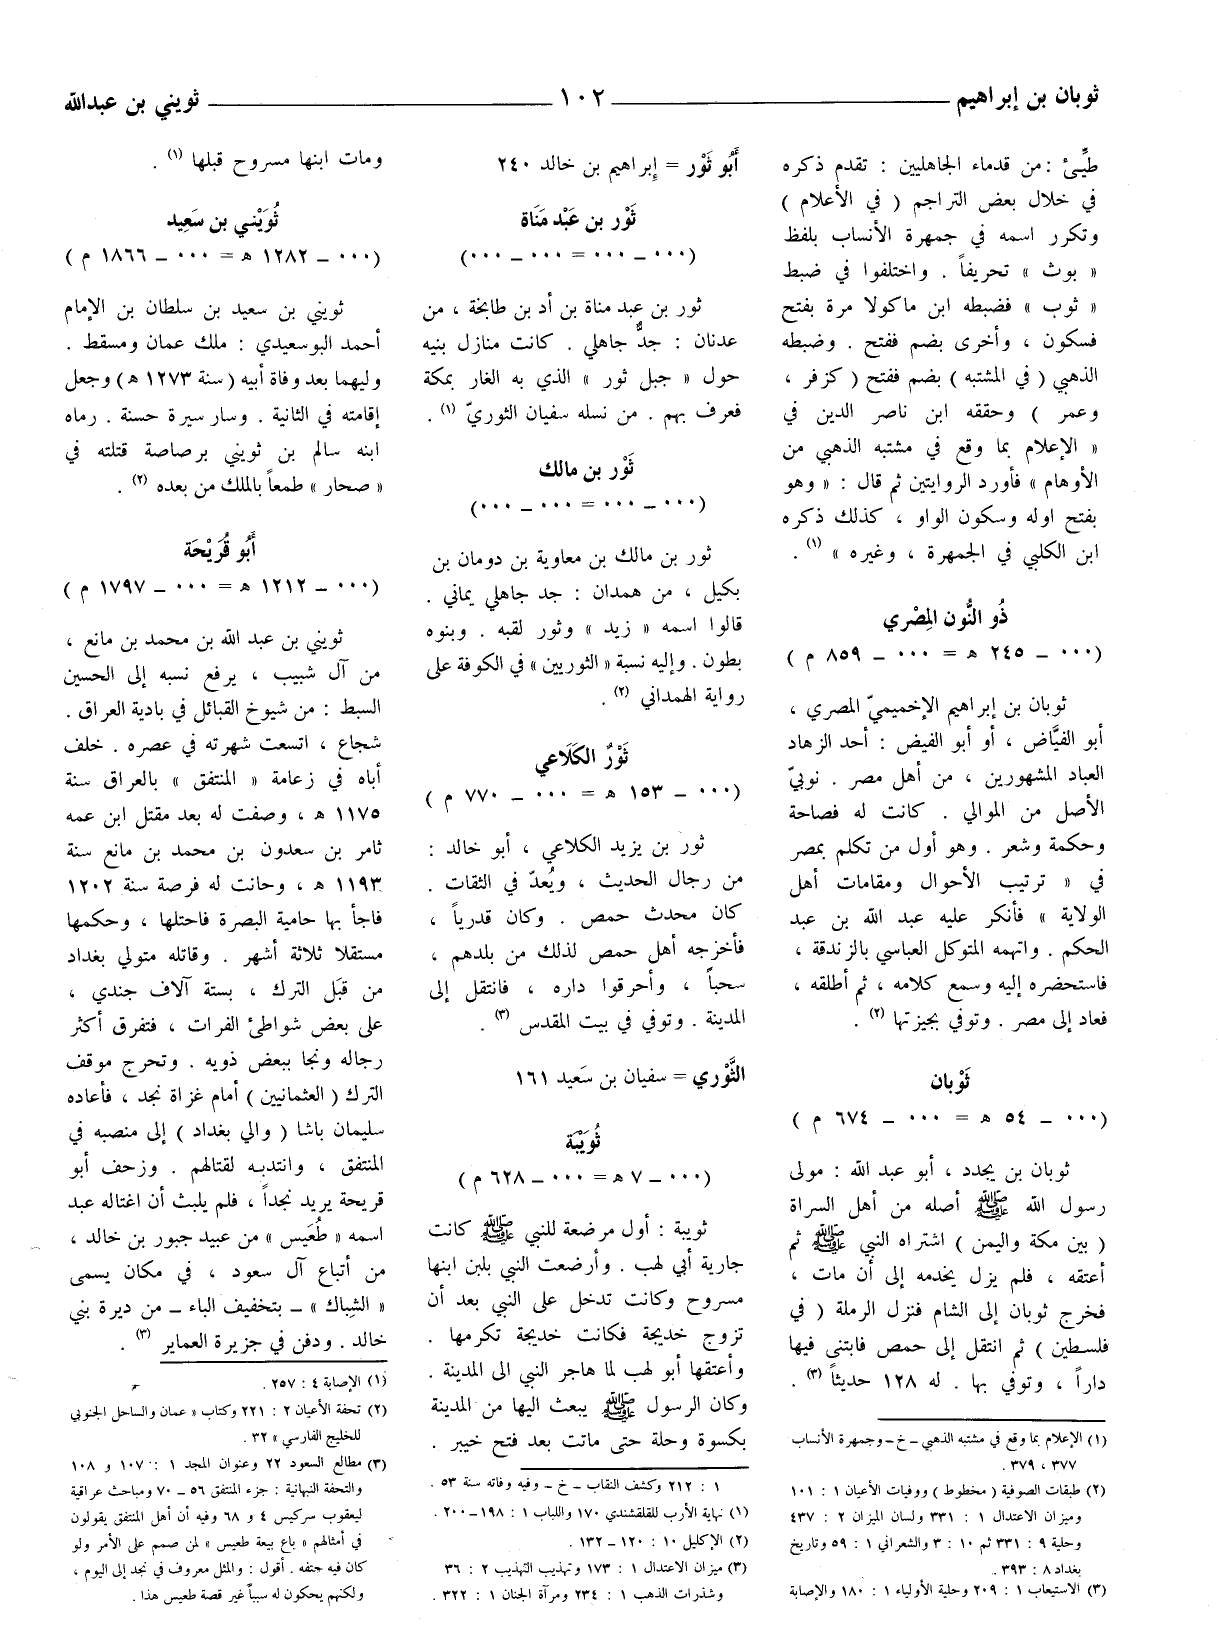 ثوبان بن إبراهيم ــــــ ١٠٢ ــــــ ثويني بن عبدالله
طيِّئ : من قدماء الجاهليين : تقدم ذكره
في خلال بعض التراجم ( في الأعلام )
وتكرر اسمه في جمهرة الأنساب بلفظ
« بوث » تحريفاً . واختلفوا في ضبط
« ثوب » فضبطه ابن ماكولا مرة بفتح
فسكون ، وأخرى بضم ففتح . وضبطه
الذهبي ( في المشتبه ) بضم ففتح ( كزفر ،
وعمر ) وحققه ابن ناصر الدين في
« الإعلام بما وقع في مشتبه الذهبي من
الأوهام » فأورد الروايتين ثم قال : « وهو
بفتح اوله وسكون الواو ، كذلك ذكره
ابن الكلبي في الجمهرة ، وغيره » (١) .
ذُو النُّون المِصْري
(٠٠٠ ــ ٢٤٥ هـ = ٠٠٠ ــ ٨٥٩ م )
ثوبان بن إبراهيم الإخميميّ المصري ،
أبو الفيَّاض ، أو أبو الفيض : أحد الزهاد
العباد المشهورين ، من أهل مصر . نوبيّ
الأصل من الموالي . كانت له فصاحة
وحكمة وشعر . وهو أول من تكلم بمصر
في « ترتيب الأحوال ومقامات أهل
الولاية » فأنكر عليه عبد الله بن عبد
الحكم . واتهمه المتوكل العباسي بالزندقة ،
فاستحضره إليه وسمع كلامه ، ثم أطلقه ،
فعاد إلى مصر . وتوفي بجيزتها (٢) .
ثَوْبان
(٠٠٠ ــ ٥٤ هـ = ٠٠٠ ــ ٦٧٤ م )
ثوبان بن يجدد ، أبو عبد الله : مولى
رسول الله ﷺ أصله من أهل السراة
( بين مكة واليمن ) اشتراه النبي ﷺ ثم
أعتقه ، فلم يزل يخدمه إلى أن مات ،
فخرج ثوبان إلى الشام فنزل الرملة ( في
فلسطين ) ثم انتقل إلى حمص فابتنى فيها
داراً ، وتوفي بها . له ١٢٨ حديثاً (٣) .
(١) الإعلام بما وقع في مشتبه الذهبي ــ خ ــ وجمهرة الأنساب
٣٧٧ ، ٣٧٩ .
(٢) طبقات الصوفية ( مخطوط ) ووفيات الأعيان ١ : ١٠١
وميزان الاعتدال ١ : ٣٣١ ولسان الميزان ٢ : ٤٣٧
وحلية ٩ : ٣٣١ ثم ١٠ : ٣ والشعراني ١ : ٥٩ وتاريخ
بغداد ٨ : ٣٩٣ .
(٣) الاستيعاب ١ : ٢٠٩ وحلية الأولياء ١ : ١٨٠ والإصابة
أَبُو ثَوْر = إبراهيم بن خالد ٢٤٠
ثَوْر بن عَبْد مَنَاة
(٠٠٠ ــ ٠٠٠ = ٠٠٠ ــ ٠٠٠)
ثور بن عبد مناة بن أد بن طابخة ، من
عدنان : جدٌّ جاهلي . كانت منازل بنيه
حول « جبل ثور » الذي به الغار بمكة
فعرف بهم . من نسله سفيان الثوريّ (١) .
ثَوْر بن مالك
(٠٠٠ ــ ٠٠٠ = ٠٠٠ ــ ٠٠٠)
ثور بن مالك بن معاوية بن دومان بن
بكيل ، من همدان : جد جاهلي يماني .
قالوا اسمه « زيد » وثور لقبه . وبنوه
بطون . وإليه نسبة « الثوريين » في الكوفة على
رواية الهمداني (٢) .
ثَوْرٌ الكَلَاعي
(٠٠٠ ــ ١٥٣ هـ = ٠٠٠ ــ ٧٧٠ م )
ثور بن يزيد الكلاعي ، أبو خالد :
من رجال الحديث ، ويُعدّ في الثقات .
كان محدث حمص . وكان قدرياً ،
فأخرجه أهل حمص لذلك من بلدهم ،
سحباً ، وأحرقوا داره ، فانتقل إلى
المدينة . وتوفي في بيت المقدس (٣) .
الثَّوْري = سفيان بن سَعيد ١٦١
ثُوَيْبَة
(٠٠٠ ــ ٧ هـ = ٠٠٠ ــ ٦٢٨ م )
ثويبة : أول مرضعة للنبي ﷺ كانت
جارية أبي لهب . وأرضعت النبي بلبن ابنها
مسروح وكانت تدخل على النبي بعد أن
تزوج خديجة فكانت خديجة تكرمها .
وأعتقها أبو لهب لما هاجر النبي الى المدينة .
وكان الرسول ﷺ يبعث اليها من المدينة
بكسوة وحلة حتى ماتت بعد فتح خيبر .
١ : ٢١٢ وكشف النقاب ــ خ ــ وفيه وفاته سنة ٥٣ .
(١) نهاية الأرب للقلقشندي ١٧٠ واللباب ١ : ١٩٨ــ٢٠٠ .
(٢) الإكليل ١٠ : ١٢٠ــ١٣٢ .
(٣) ميزان الاعتدال ١ : ١٧٣ وتهذيب التهذيب ٢ : ٣٦
وشذرات الذهب ١ : ٢٣٤ ومرآة الجنان ١ : ٣٢٢ .
ومات ابنها مسروح قبلها (١) .
ثُوَيْنـي بن سَعِيد
(٠٠٠ ــ ١٢٨٢ هـ = ٠٠٠ ــ ١٨٦٦ م )
ثويني بن سعيد بن سلطان بن الإمام
أحمد البوسعيدي : ملك عمان ومسقط .
وليهما بعد وفاة أبيه ( سنة ١٢٧٣ هـ ) وجعل
إقامته في الثانية . وسار سيرة حسنة . رماه
ابنه سالم بن ثويني برصاصة قتلته في
« صحار » طمعاً بالملك من بعده (٢) .
أَبُو قُرَيْحَة
(٠٠٠ ــ ١٢١٢ هـ = ٠٠٠ ــ ١٧٩٧ م )
ثويني بن عبد الله بن محمد بن مانع ،
من آل شبيب ، يرفع نسبه إلى الحسين
السبط : من شيوخ القبائل في بادية العراق .
شجاع ، اتسعت شهرته في عصره . خلف
أباه في زعامة « المنتفق » بالعراق سنة
١١٧٥ هـ ، وصفت له بعد مقتل ابن عمه
ثامر بن سعدون بن محمد بن مانع سنة
١١٩٣ هـ ، وحانت له فرصة سنة ١٢٠٢
فاجأ بها حامية البصرة فاحتلها ، وحكمها
مستقلا ثلاثة أشهر . وقاتله متولي بغداد
من قبَل الترك ، بستة آلاف جندي ،
على بعض شواطئ الفرات ، فتفرق أكثر
رجاله ونجا ببعض ذويه . وتحرج موقف
الترك ( العثمانيين ) أمام غزاة نجد ، فأعاده
سليمان باشا ( والي بغداد ) إلى منصبه في
المنتفق ، وانتدبه لقتالهم . وزحف أبو
قريحة يريد نجداً ، فلم يلبث أن اغتاله عبد
اسمه « طُعَيس » من عبيد جبور بن خالد ،
من أتباع آل سعود ، في مكان يسمى
« الشِباك » ــ بتخفيف الباء ــ من ديرة بني
خالد . ودفن في جزيرة العماير (٣) .
(١) الإصابة ٤ : ٢٥٧ .
(٢) تحفة الأعيان ٢ : ٢٢١ وكتاب « عمان والساحل الجنوبي
للخليج الفارسي » ٣٢ .
(٣) مطالع السعود ٢٢ وعنوان المجد ١ : ١٠٧ و ١٠٨
والتحفة النبهانية : جزء المنتفق ٥٦ ــ ٧٠ ومباحث عراقية
ليعقوب سركيس ٤ و ٦٨ وفيه أن أهل المنتفق يقولون
في أمثالهم « باع بيعة طعيس » لمن صمم على الأمر ولو
كان فيه حتفه . أقول : والمثل معروف في نجد إلى اليوم ،
ولكنهم يحكون له سبباً غير قصة طعيس هذا .